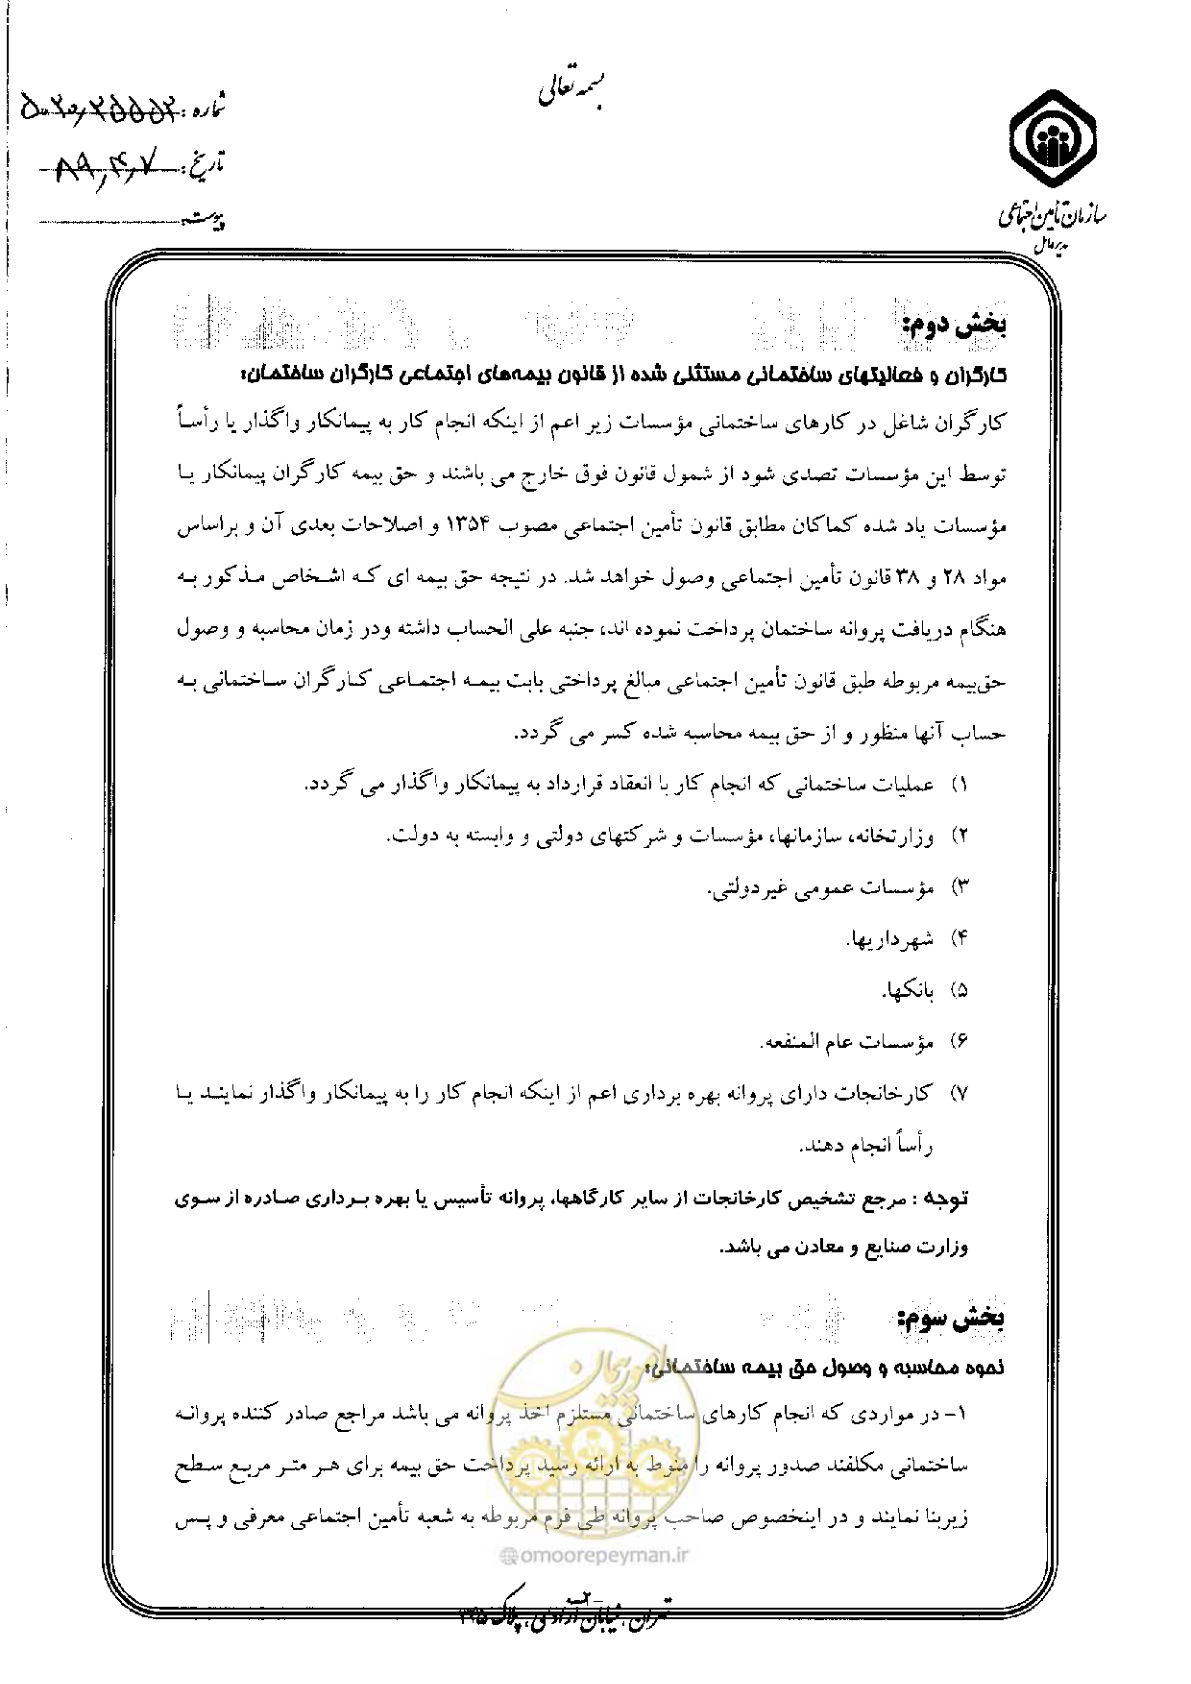 بسمه تعالی
شماره: ۵۰۲۰/۲۵۵۵۲
تاریخ: ۸۹/۴/۷
پیوست:
سازمان تأمین اجتماعی
مدیرعامل
بخش دوم:
کارگران و فعالیتهای ساختمانی مستثنی شده از قانون بیمه‌های اجتماعی کارگران ساختمان:
کارگران شاغل در کارهای ساختمانی مؤسسات زیر اعم از اینکه انجام کار به پیمانکار واگذار یا رأساً
توسط این مؤسسات تصدی شود از شمول قانون فوق خارج می باشند و حق بیمه کارگران پیمانکار یا
مؤسسات یاد شده کماکان مطابق قانون تأمین اجتماعی مصوب ۱۳۵۴ و اصلاحات بعدی آن و براساس
مواد ۲۸ و ۳۸ قانون تأمین اجتماعی وصول خواهد شد. در نتیجه حق بیمه ای که اشخاص مذکور به
هنگام دریافت پروانه ساختمان پرداخت نموده اند، جنبه علی الحساب داشته ودر زمان محاسبه و وصول
حق‌بیمه مربوطه طبق قانون تأمین اجتماعی مبالغ پرداختی بابت بیمه اجتماعی کارگران ساختمانی به
حساب آنها منظور و از حق بیمه محاسبه شده کسر می گردد.
۱) عملیات ساختمانی که انجام کار با انعقاد قرارداد به پیمانکار واگذار می گردد.
۲) وزارتخانه، سازمانها، مؤسسات و شرکتهای دولتی و وابسته به دولت.
۳) مؤسسات عمومی غیردولتی.
۴) شهرداریها.
۵) بانکها.
۶) مؤسسات عام المنفعه.
۷) کارخانجات دارای پروانه بهره برداری اعم از اینکه انجام کار را به پیمانکار واگذار نمایند یا
رأساً انجام دهند.
توجه : مرجع تشخیص کارخانجات از سایر کارگاهها، پروانه تأسیس یا بهره برداری صادره از سوی
وزارت صنایع و معادن می باشد.
بخش سوم:
نحوه محاسبه و وصول حق بیمه ساختمانی:
۱- در مواردی که انجام کارهای ساختمانی مستلزم اخذ پروانه می باشد مراجع صادر کننده پروانه
ساختمانی مکلفند صدور پروانه را منوط به ارائه رسید پرداخت حق بیمه برای هر متر مربع سطح
زیربنا نمایند و در اینخصوص صاحب پروانه طی فرم مربوطه به شعبه تأمین اجتماعی معرفی و پس
امور پیمان
@omoorepeyman.ir
تهران، خیابان آزادی، پلاک ۳۴۵